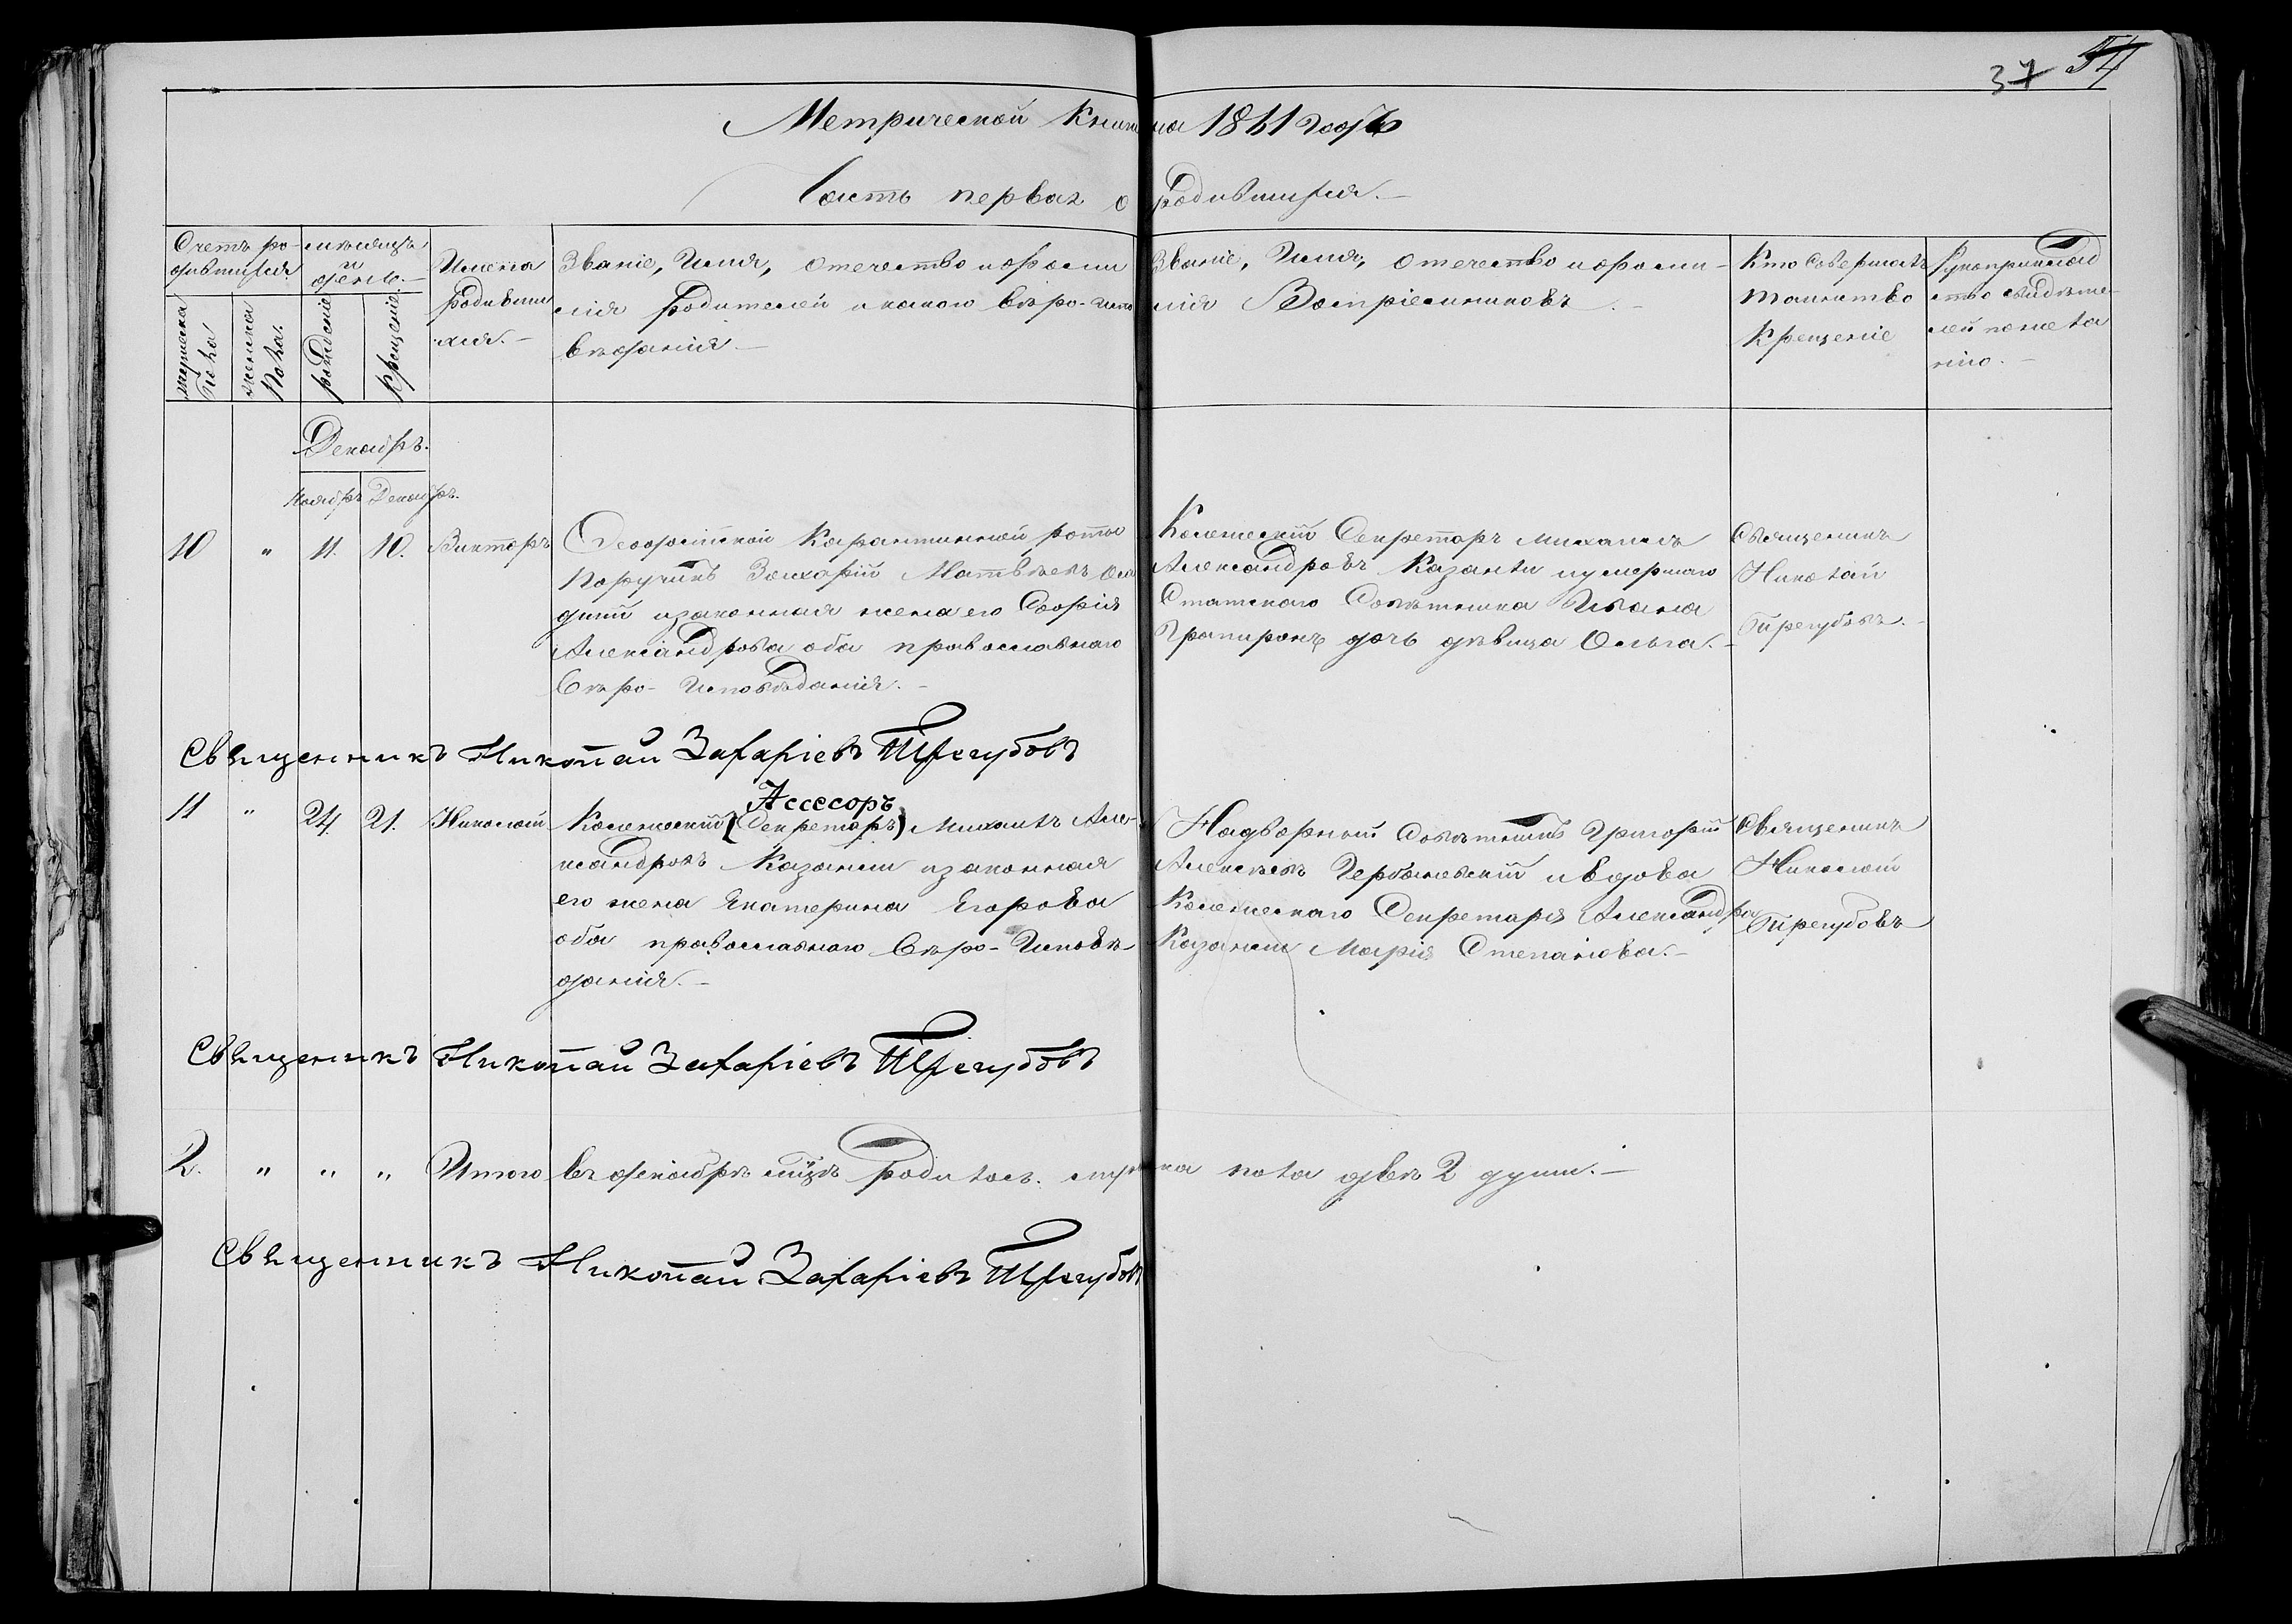 37 54
Метрической книги на 1841 годъ
Часть первая о родившихся.—
Счетъ родившихся
мѣсяцъ и день.—
мужеска пола
женска пола.
рожденіе
крещеніе
Имена родившихся.—
Званіе, Имя, отечество и фамилія родителей и какого вѣро-исповѣданія.—
Званіе, Имя, отечество и фамилія Воспріемниковъ.—
Кто совершалъ таинство крещеніе
Рукоприкладство свидѣтелей по желанію.—
Декабрь.
Ноябрь Декабрь.
10 " 11. 10. Викторъ
Феодосійской карантинной роты
Поручикъ Захарій Матвѣевъ
и законная жена его Софія
Александрова оба православнаго
Вѣро-Исповѣданія.—
Колежскій Секретарь Михаилъ
Александровъ Казанли и умершаго
Статскаго Совѣтника Ивана
дочь дѣвица Ольга.—
Священникъ
Николай
Трегубовъ.—
Священникъ Николай Захаріевъ Трегубовъ
11 " 24 21. Николай
Ассесоръ
Колежскій (Секретарь) Михаилъ Але-
ксандровъ Казанли и законная
его жена Екатерина Егорова
оба православнаго Вѣро-Исповѣ-
данія.—
Надворный Совѣтникъ Григорій
Алексѣевъ и вдова
Колежскаго Секретаря Александра
Казанли Марія Степанова.—
Священникъ
Николай
Трегубовъ
Священикъ Николай Захаріевъ Трегубовъ
2. " " " Итого въ декабрѣ мѣсцѣ родилось мужска пола двѣ 2 души.—
Священникъ Николай Захаріевъ Трегубовъ